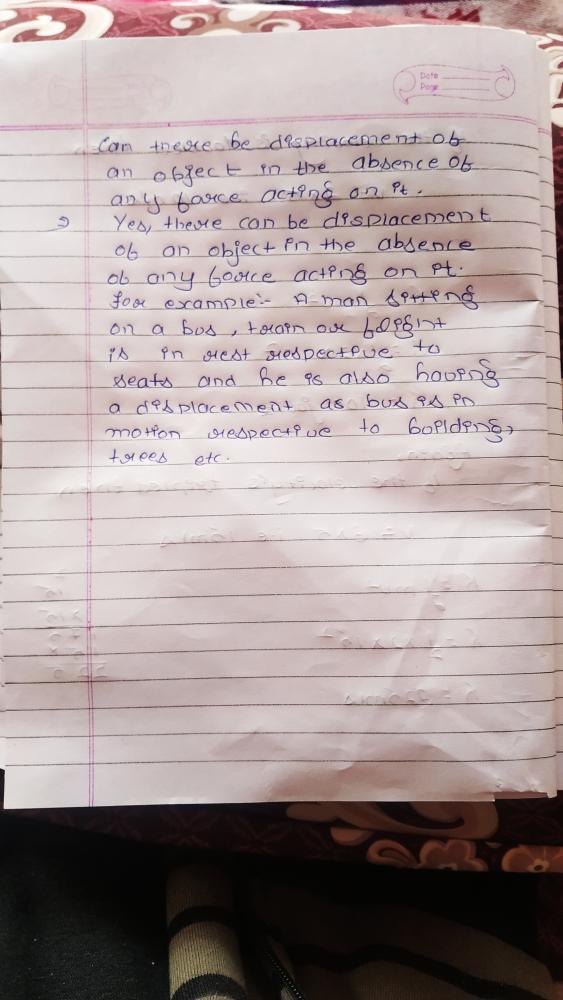 Date
Page
Can there be displacement of
an object in the absence of
any force acting on it.
→ Yes, there can be displacement
of an object in the absence
of any force acting on it.
for example:- A man sitting
on a bus, train or fligint
is in rest respective to
seats and he is also having
a displacement as bus is in
motion respective to buildings,
trees etc.